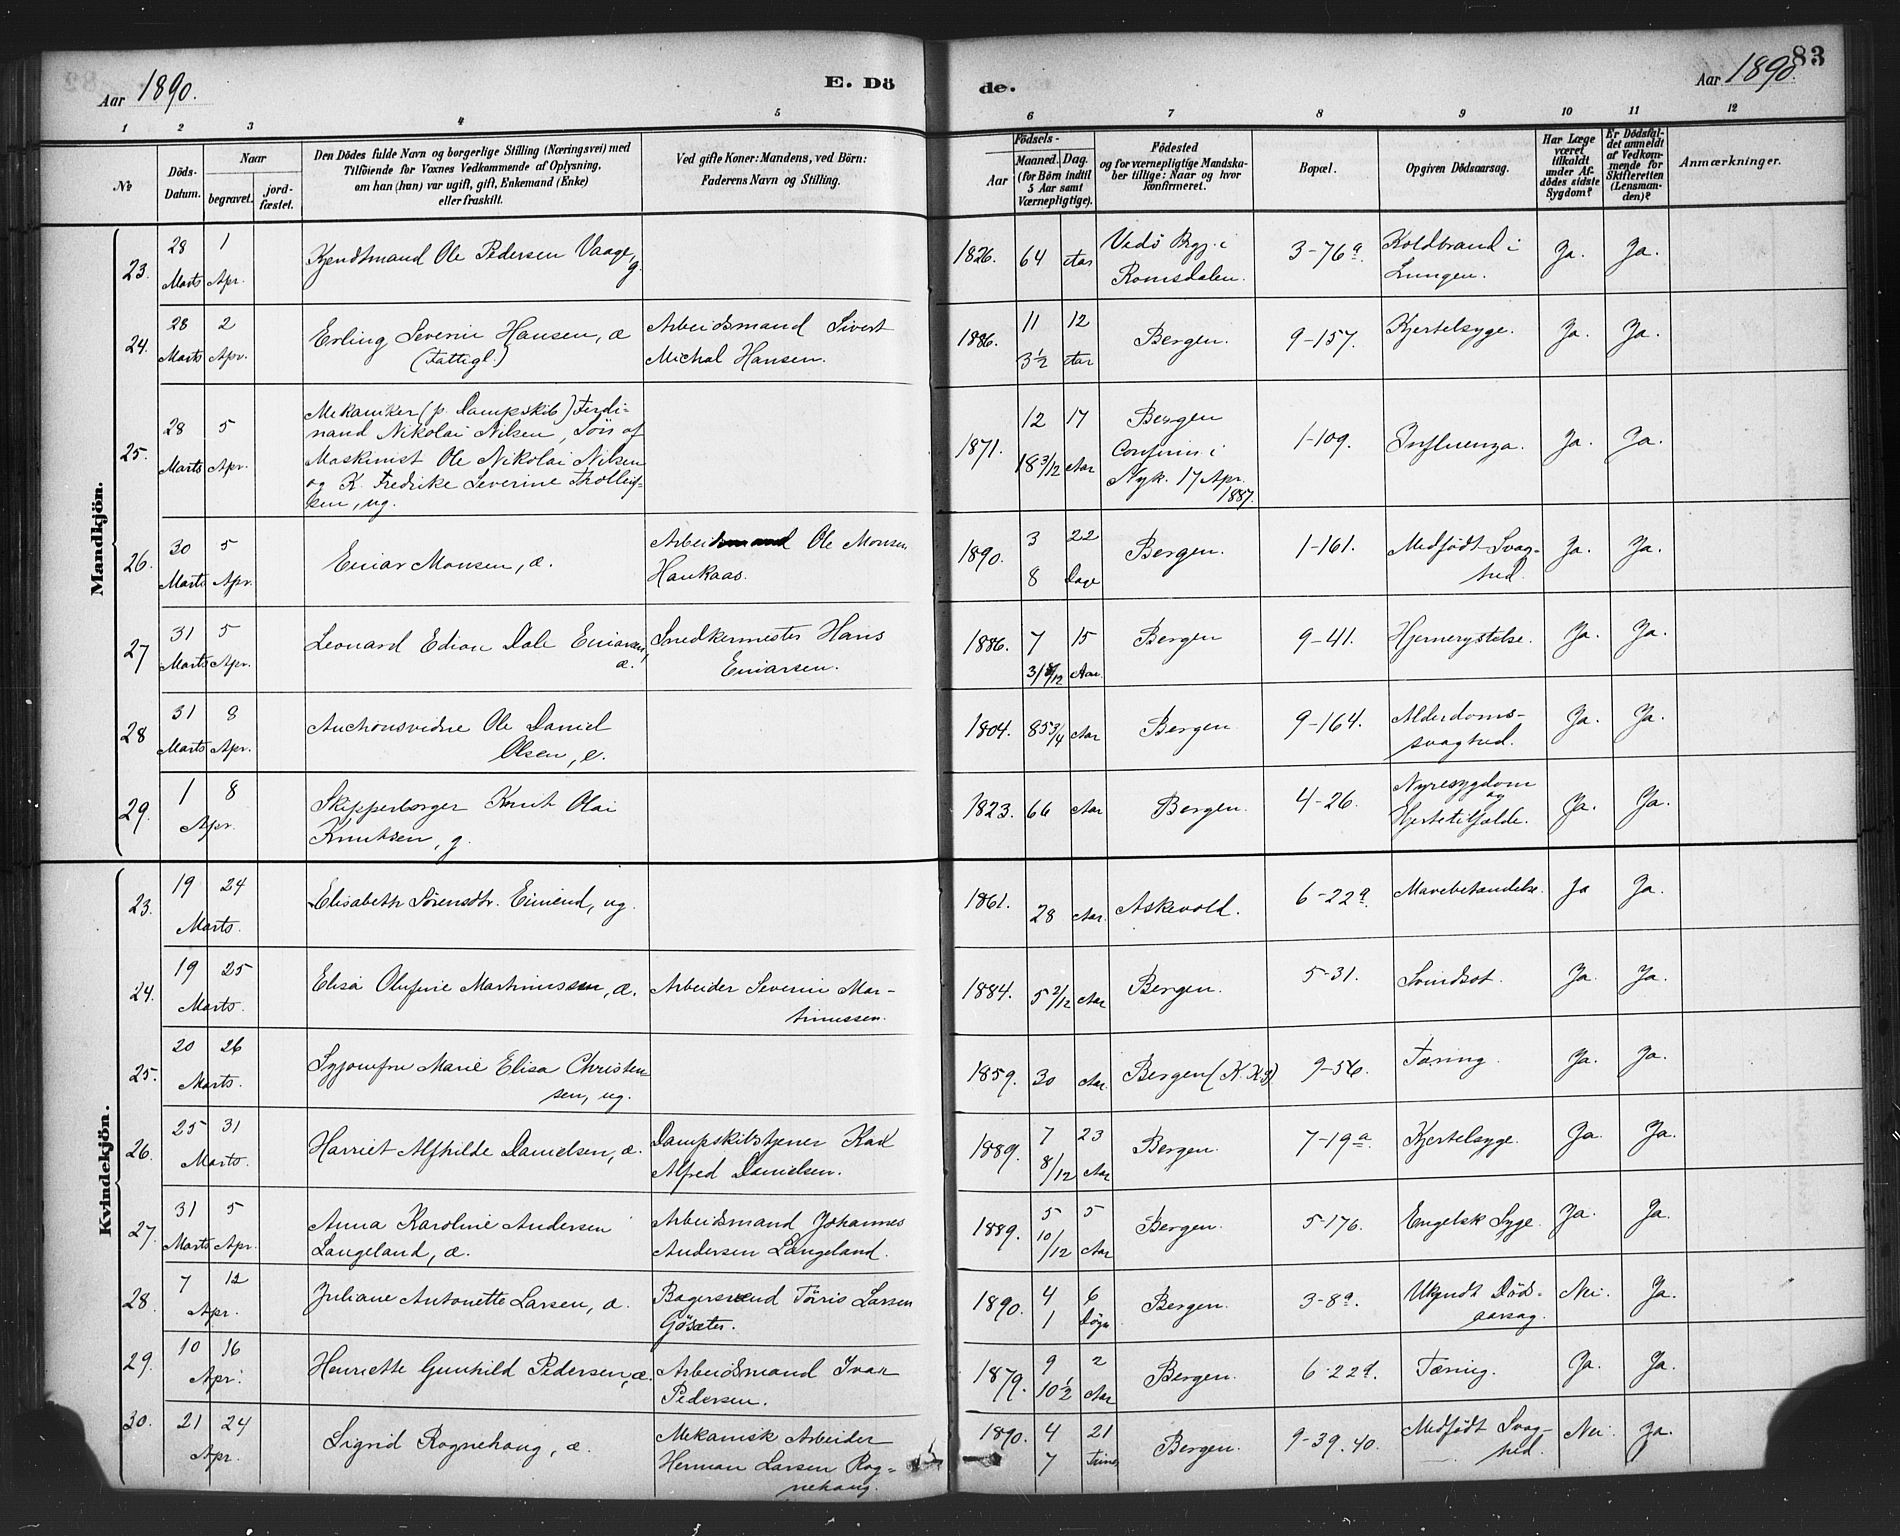 Aar 1890.
E. Dö
de.
Aar 1890.
83
1 2 3 4 5 6 7 8 9 10 11 12
No
Döds-
Datum.
Naar
begravet.
jord-
fæstet.
Den Dödes fulde Navn og borgerlige Stilling (Næringsvei) med
Tilföiende for Voxnes Vedkommende af Oplysning,
om han (hun) var ugift, gift, Enkemand (Enke)
eller fraskilt.
Ved gifte Koner: Mandens, ved Börn:
Faderens Navn og Stilling.
Födsels-
Aar
Maaned. Dag.
(for Börn indtil
5 Aar samt
Værnepligtige).
Födested
og for værnepligtige Mandska-
ber tillige: Naar og hvor
konfirmeret.
Bopæl.
Opgiven Dödsaarsag.
Har Læge
været
tilkaldt
under Af-
dödes sidste
Sygdom?
Er Dödsfal-
det anmeldt
af Vedkom-
mende for
Skifteretten
(Lensman-
den)?
Anmærkninger.
Mandkjön.
23. 28 Marts 1 Apr. Kjendtmand Ole Pedersen Vaage, g. 1826. 64 Aar Vedö Pgj. i Romsdalen. 3-76a. Koldbrand i Lungen. Ja. Ja.
24. 28 Marts 2 Apr. Erling Severin Hansen, æ (Fattigl.) Arbeidsmand Sivert Michal Hansen. 1886. 11 12 3½ Aar Bergen. 9-157. Kjertelsyge. Ja. Ja.
25. 28 Marts 5 Apr. Mekaniker (p. Dampskib) Ferdi-
nand Nikolai Nilsen, Sön af
Maskinist Ole Nikolai Nilsen
og K. Fredrike Severine Thollef-
sen, ug. 1871. 12 17 18 3/12 Aar Bergen Confirm. i Nyk. 17 Apr. 1887. 1-109. Influenza. Ja. Ja.
26. 30 Marts 5 Apr. Einar Monsen, æ. Arbeidsmand Ole Monsen Haukaas. 1890. 3 22 8 Dage Bergen. 1-161. Medfödt Svag-
hed. Ja. Ja.
27 31 Marts 5 Apr. Leonard Edion Dale Einarsen, æ. Snedkermester Hans Einarsen. 1886. 7 15 Aar. Bergen 9-41. Hjernerystelse. Ja. Ja.
28 31 Marts 8 Apr. Auctionsvidne Ole Daniel Olsen, e. 1804. 85 3/4 Aar Bergen. 9-164. Alderdoms-
svaghed. Ja. Ja.
29. 1 8 Apr. Skipperborger Knut Olai Knutsen, g. 1823. 66 Aar Bergen. 4-26. Nyresygdom og Hjertetilfælde. Ja. Ja.
Kvindekjön.
23. 19 24 Marts. Elisabeth Sörensdtr. Eimend, ug. 1861. 28 Aar. Askevold. 6-22a. Mavebetændelse. Ja Ja.
24. 19 25 Marts. Elisa Olufine Martinussen, æ. Arbeider Severin Mar-
tinussen. 1884. 5 2/12 Aar Bergen. 5-31. Svindsot. Ja. Ja.
25. 20 26 Marts. Syjomfru Marie Elisa Christen-
sen, ug. 1859. 30 Aar. Bergen (K. K.) 9-56. Tæring. Ja. Ja.
26. 25 31 Marts. Harriet Alfhilde Danielsen, æ. Dampskibstjener Karl Alfred Danielsen. 1889. 7 23 8/12 Aar Bergen. 7-19a. Kjertelsyge. Ja. Ja.
27. 31 Marts 5 Apr. Anna Karoline Andersen Langeland, æ. Arbeidsmand Johannes Andersen Langeland. 1889. 5 5 10/12 Aar Bergen. 5-176. Engelsk Syge. Ja. Ja.
28. 7 12 Apr. Juliane Antonette Larsen, æ. Bagersvend Törris Larsen Gösæter. 1890. 4 6 1 Dögn Bergen. 3-8a. Ukjendt Döds-
aarsag. Nei. Ja.
29. 10 16 Apr. Henriette Gunhild Pedersen, æ. Arbeidsmand Ivar Pedersen. 1879. 9 2 10½ Aar Bergen. 6-22a. Tæring. Ja. Ja.
30. 21 24 Apr. Sigrid Rognehaug, æ. Mekanisk Arbeider Herman Larsen Rog-
nehaug. 1890. 4 21 7 Timer Bergen. 9-39.40. Medfödt Svag-
hed. Nei. Ja.